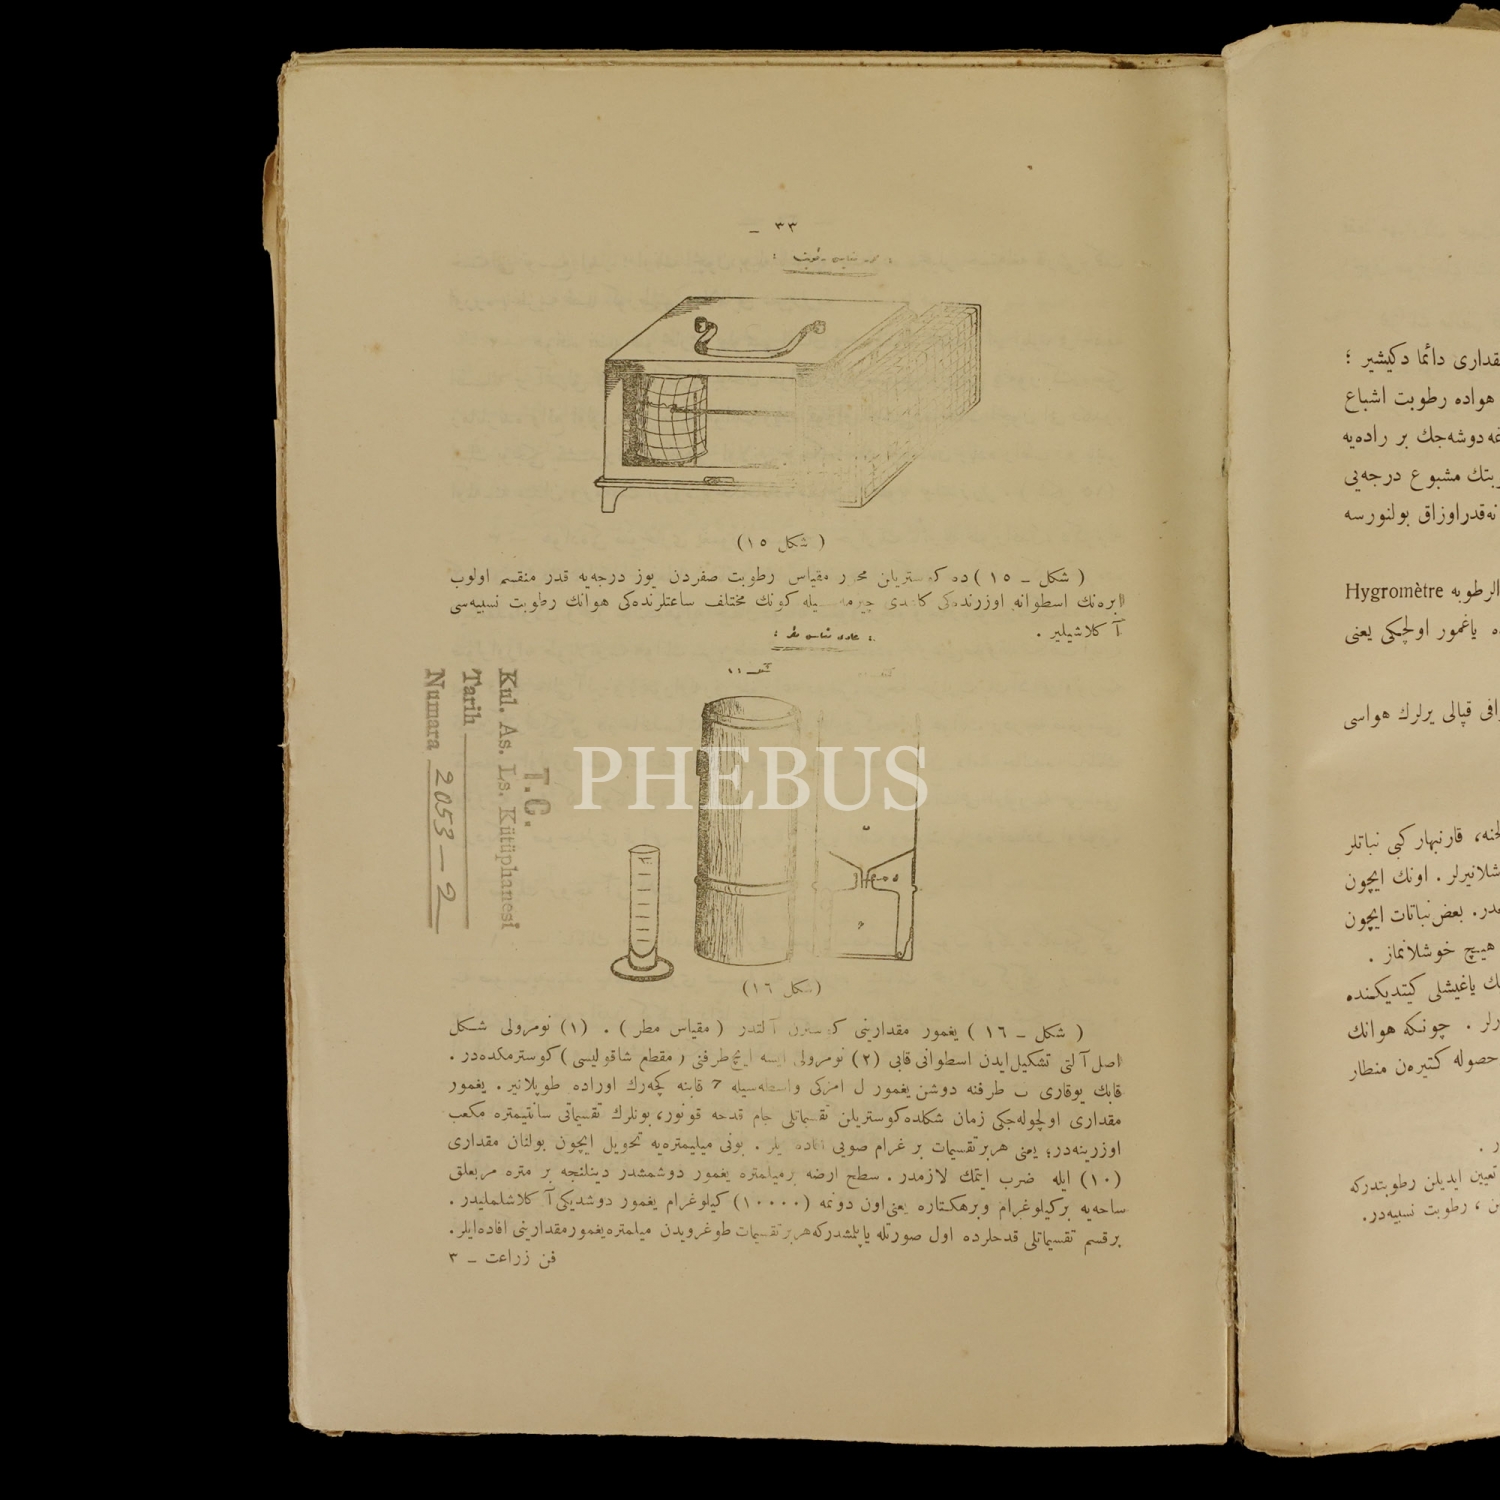 ٣٣ ـ
( شكل ١٥ )
( شكل ـ ١٥ ) ده كوستريلن محرر مقياس رطوبت صفردن يوز درجه‌يه قدر منقسم اولوب
ابره‌نك اسطوانه اوزرنده‌كى كاغدى چيزمه سيله كونك مختلف ساعتلرنده‌كى هوانك رطوبت نسبيه‌سى
آ كلاشيلير .
( شكل ١٦ )
( شكل ـ ١٦ ) يغمور مقدارينى كوسترن آ لتدر ( مقياس مطر ) . (١) نومرولى شكل
اصل آ لتى تشكيل ايدن اسطوانى قابى (٢) نومرولى ايسه ايچ طرفنى ( مقطع شاقوليسى ) كوسترمكده‌در .
قابك يوقارى ب طرفنه دوشن يغمور ل امزكى واسطه‌سيله 7 قابنه كچه‌رك اوراده طوپلانير . يغمور
مقدارى اولچوله‌جكى زمان شكلده كوستريلن تقسيماتلى جام قدحه قونور، بونلرك تقسيماتى سانتيمتره مكعب
اوزرينه‌در ؛ يعنى هربر تقسيمات بر غرام صويى افاده ايلر . بونى ميليمتره‌يه تحويل ايچون بولنان مقدارى
(١٠) ايله ضرب ايتمك لازمدر . سطح ارضه برميلمتره يغمور دوشمشدر دينلنجه بر متره مربعلق
ساحه‌يه بركيلوغرام وبرهكتاره يعنى اون دونمه (١٠٠٠٠) كيلوغرام يغمور دوشديكى آ كلاشلمليدر .
برقسم تقسيماتلى قدحلرده اول صورتله ياپلمشدركه هربر تقسيمات طوغرويدن ميلمتره يغمور مقدارينى افاده ايلر .
فن زراعت ـ ٣
T.C.
Kul. As. Ls. Kütüphanesi
Tarih
Numara 2053 — 2
PHEBUS
قدارى دائما دكيشير ؛
هواده رطوبت اشباع
غه دوشه‌جك بر راده‌يه
بتك مشبوع درجه‌يى
نه‌قدر اوزاق بولنورسه
الرطوبه Hygromètre
ه ياغمور اولچكى يعنى
افى قپالى يرلرك هواسى
لخنه، قارنبهار كبى نباتلر
شلانيرلر . اونك ايچون
در . بعض نباتات ايچون
هيچ خوشلانماز .
ك ياغيشلى كيتديكنده
رلر . چونكه هوانك
حصوله كتيره‌ن منطار
ر .
تعيين ايديلن رطوبتدركه
ن ، رطوبت نسبيه‌در .